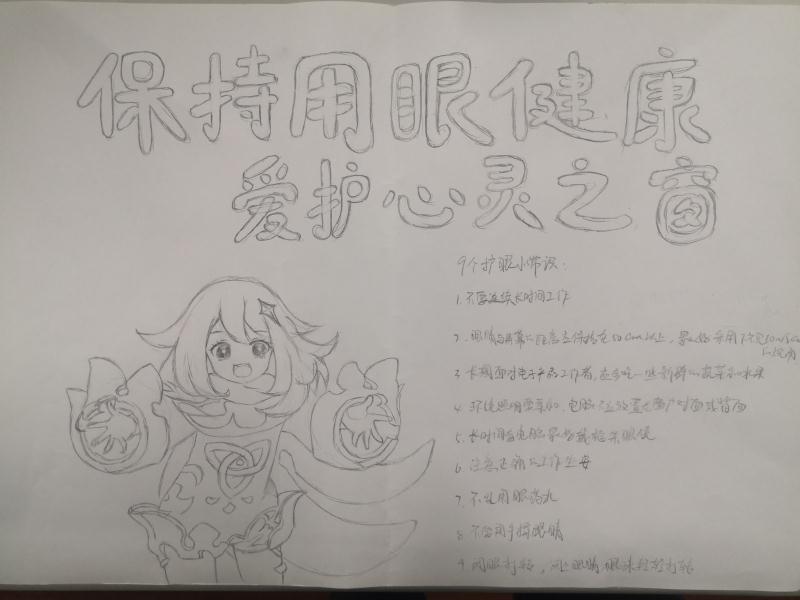 保持用眼健康
爱护心灵之窗
9个护眼小常识：
1.不要连续长时间工作
2.眼睛与屏幕的距离应保持在50cm以上，最好采用下视
3.长期面对电子产品工作者，应多吃一些新鲜的蔬菜和水果
4.环境照明要柔和，电脑不应放置在窗户对面或背面
5.长时间看电脑最好戴框架眼镜
6.注意正确的工作坐姿
7.不乱用眼药水
8.不要用手揉眼睛
9.闭眼打转，闭上眼睛眼球轻轻打转